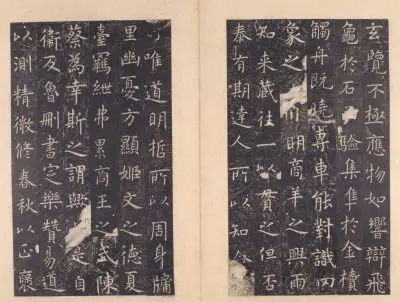 玄覽不極應物如響辯飛
龜於石驗集隼於金櫝
觸舟既曉專車能對識罔
象之川明商羊之興雨
知来藏往一以貫之但否
泰有期達人所以知
唯道明哲所以周身牖
里幽憂方顯姬文之德夏
臺羈紲弗累商王之武陳
蔡為幸斯之謂歟自
衛反魯刪書定樂贊易道
以測精微修春秋以正褒